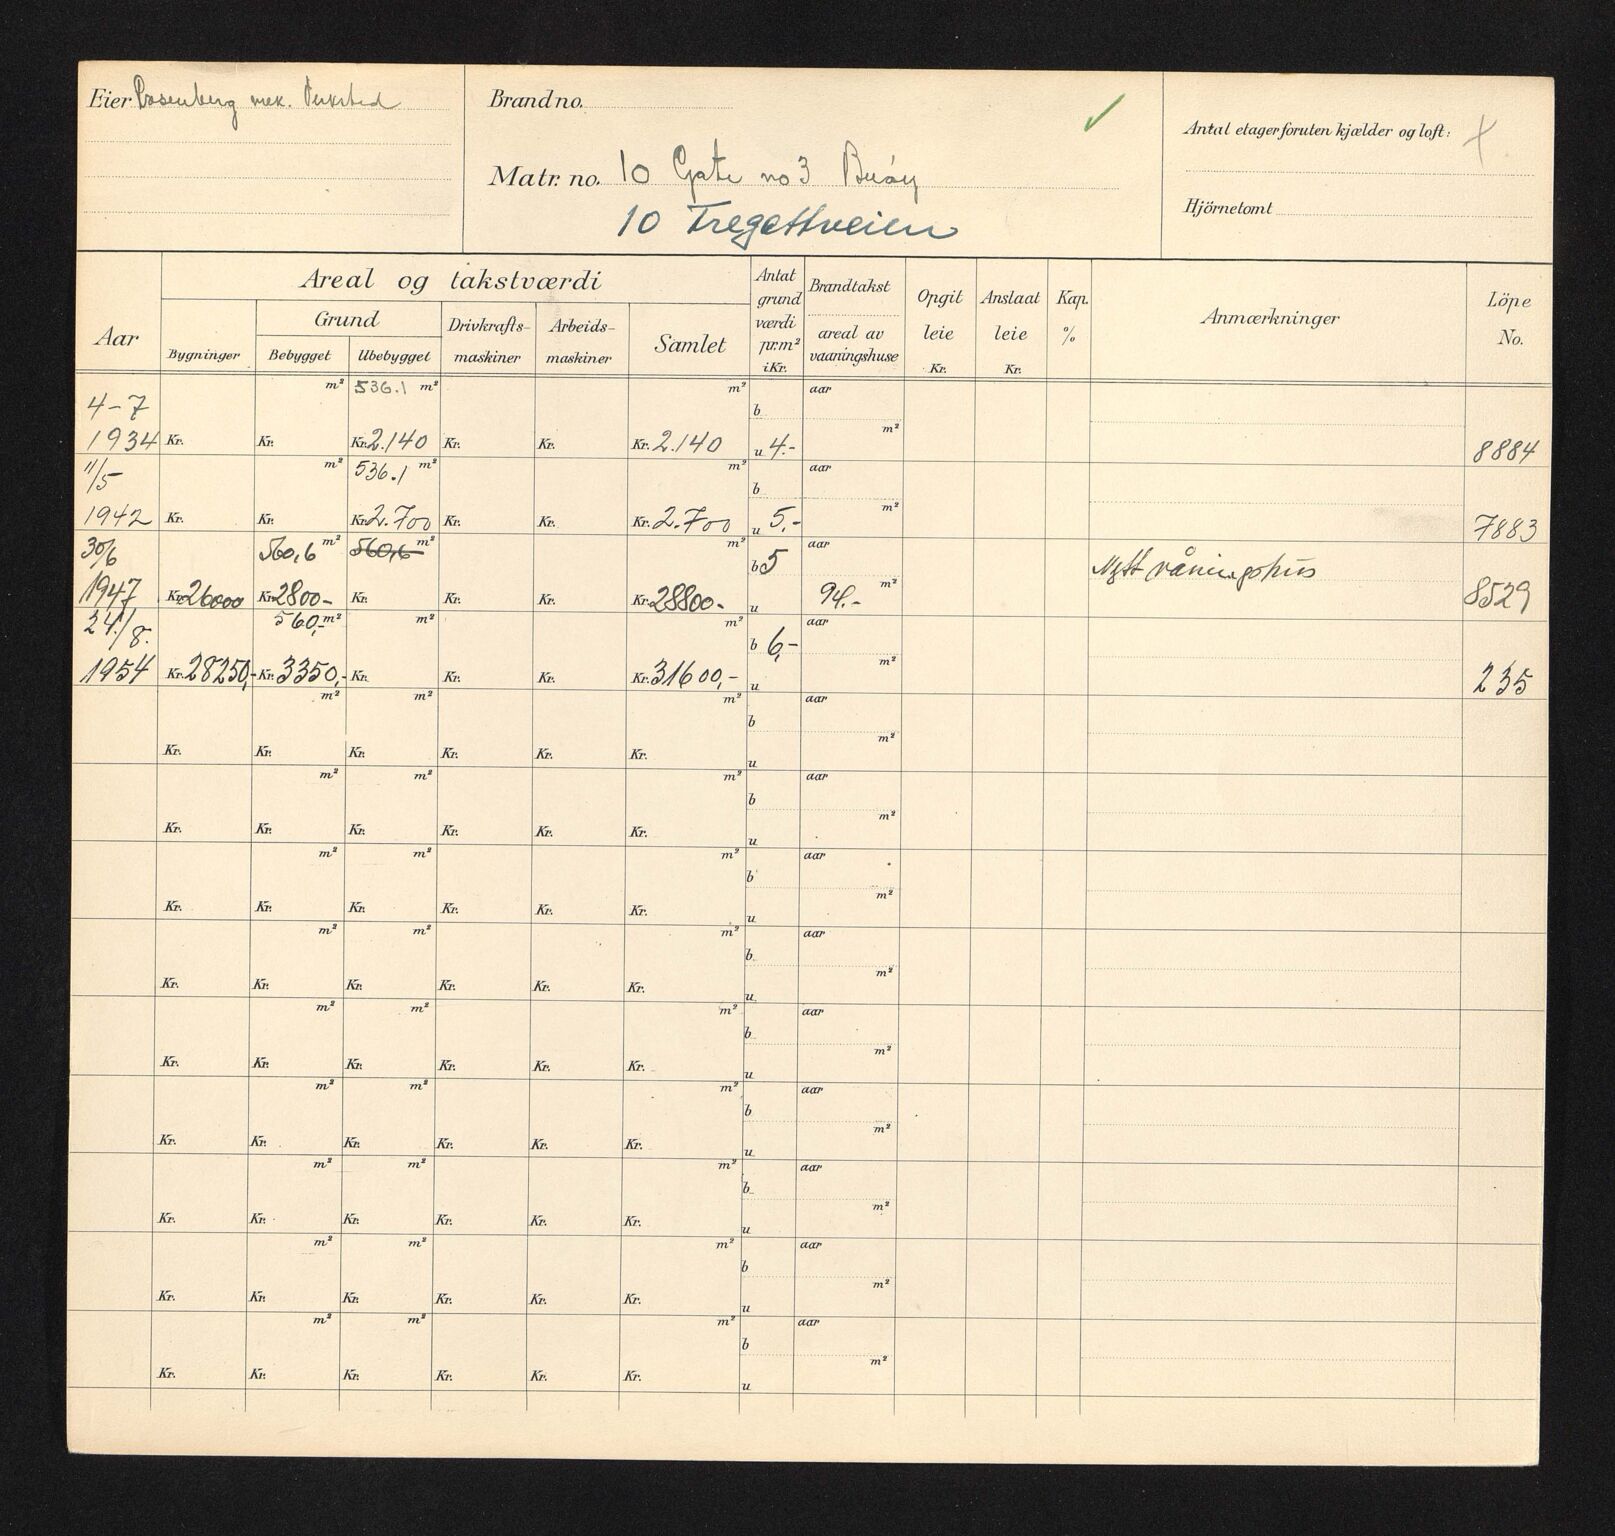 Eier Rosenberg mek. Verksted
Brand no.
Matr. no. 10 Gate no 3 Buøy
10 Tregetthveien
Antal etager foruten kjælder og loft:
Hjörnetomt
Aar
Areal og takstværdi
Bygninger
Grund
Bebygget
Ubebygget
Drivkrafts-maskiner
Arbeids-maskiner
Samlet
Antat grund værdi pr. m² i Kr.
Brandtakst
areal av vaaningshuse
Opgit leie Kr.
Anslaat leie Kr.
Kap. %
Anmærkninger
Löpe No.
m² 536.1 m² m² aar
4-7 b
1934 Kr. Kr. Kr. 2.140 Kr. Kr. Kr. 2.140 u 4.- m² 8884
11/5 m² 536.1 m² m² b aar
1942 Kr. Kr. Kr. 2.700 Kr. Kr. Kr. 2.700 u 5.- m² 7883
30/6 560,6 m² 560,6 m² m² b 5 aar Nytt våningshus
1947 Kr. 26000 Kr. 2800- Kr. Kr. Kr. Kr. 28800- u 94.- m² 8529
24./8. 560,- m² m² m² b 6,- aar
1954 Kr. 28250,- Kr. 3350,- Kr. Kr. Kr. Kr. 31600,- u m² 235
m² m² m² b aar
Kr. Kr. Kr. Kr. Kr. Kr. u m²
m² m² m² b aar
Kr. Kr. Kr. Kr. Kr. Kr. u m²
m² m² m² b aar
Kr. Kr. Kr. Kr. Kr. Kr. u m²
m² m² m² b aar
Kr. Kr. Kr. Kr. Kr. Kr. u m²
m² m² m² b aar
Kr. Kr. Kr. Kr. Kr. Kr. u m²
m² m² m² b aar
Kr. Kr. Kr. Kr. Kr. Kr. u m²
m² m² m² b aar
Kr. Kr. Kr. Kr. Kr. Kr. u m²
m² m² m² b aar
Kr. Kr. Kr. Kr. Kr. Kr. u m²
m² m² m² b aar
Kr. Kr. Kr. Kr. Kr. Kr. u m²